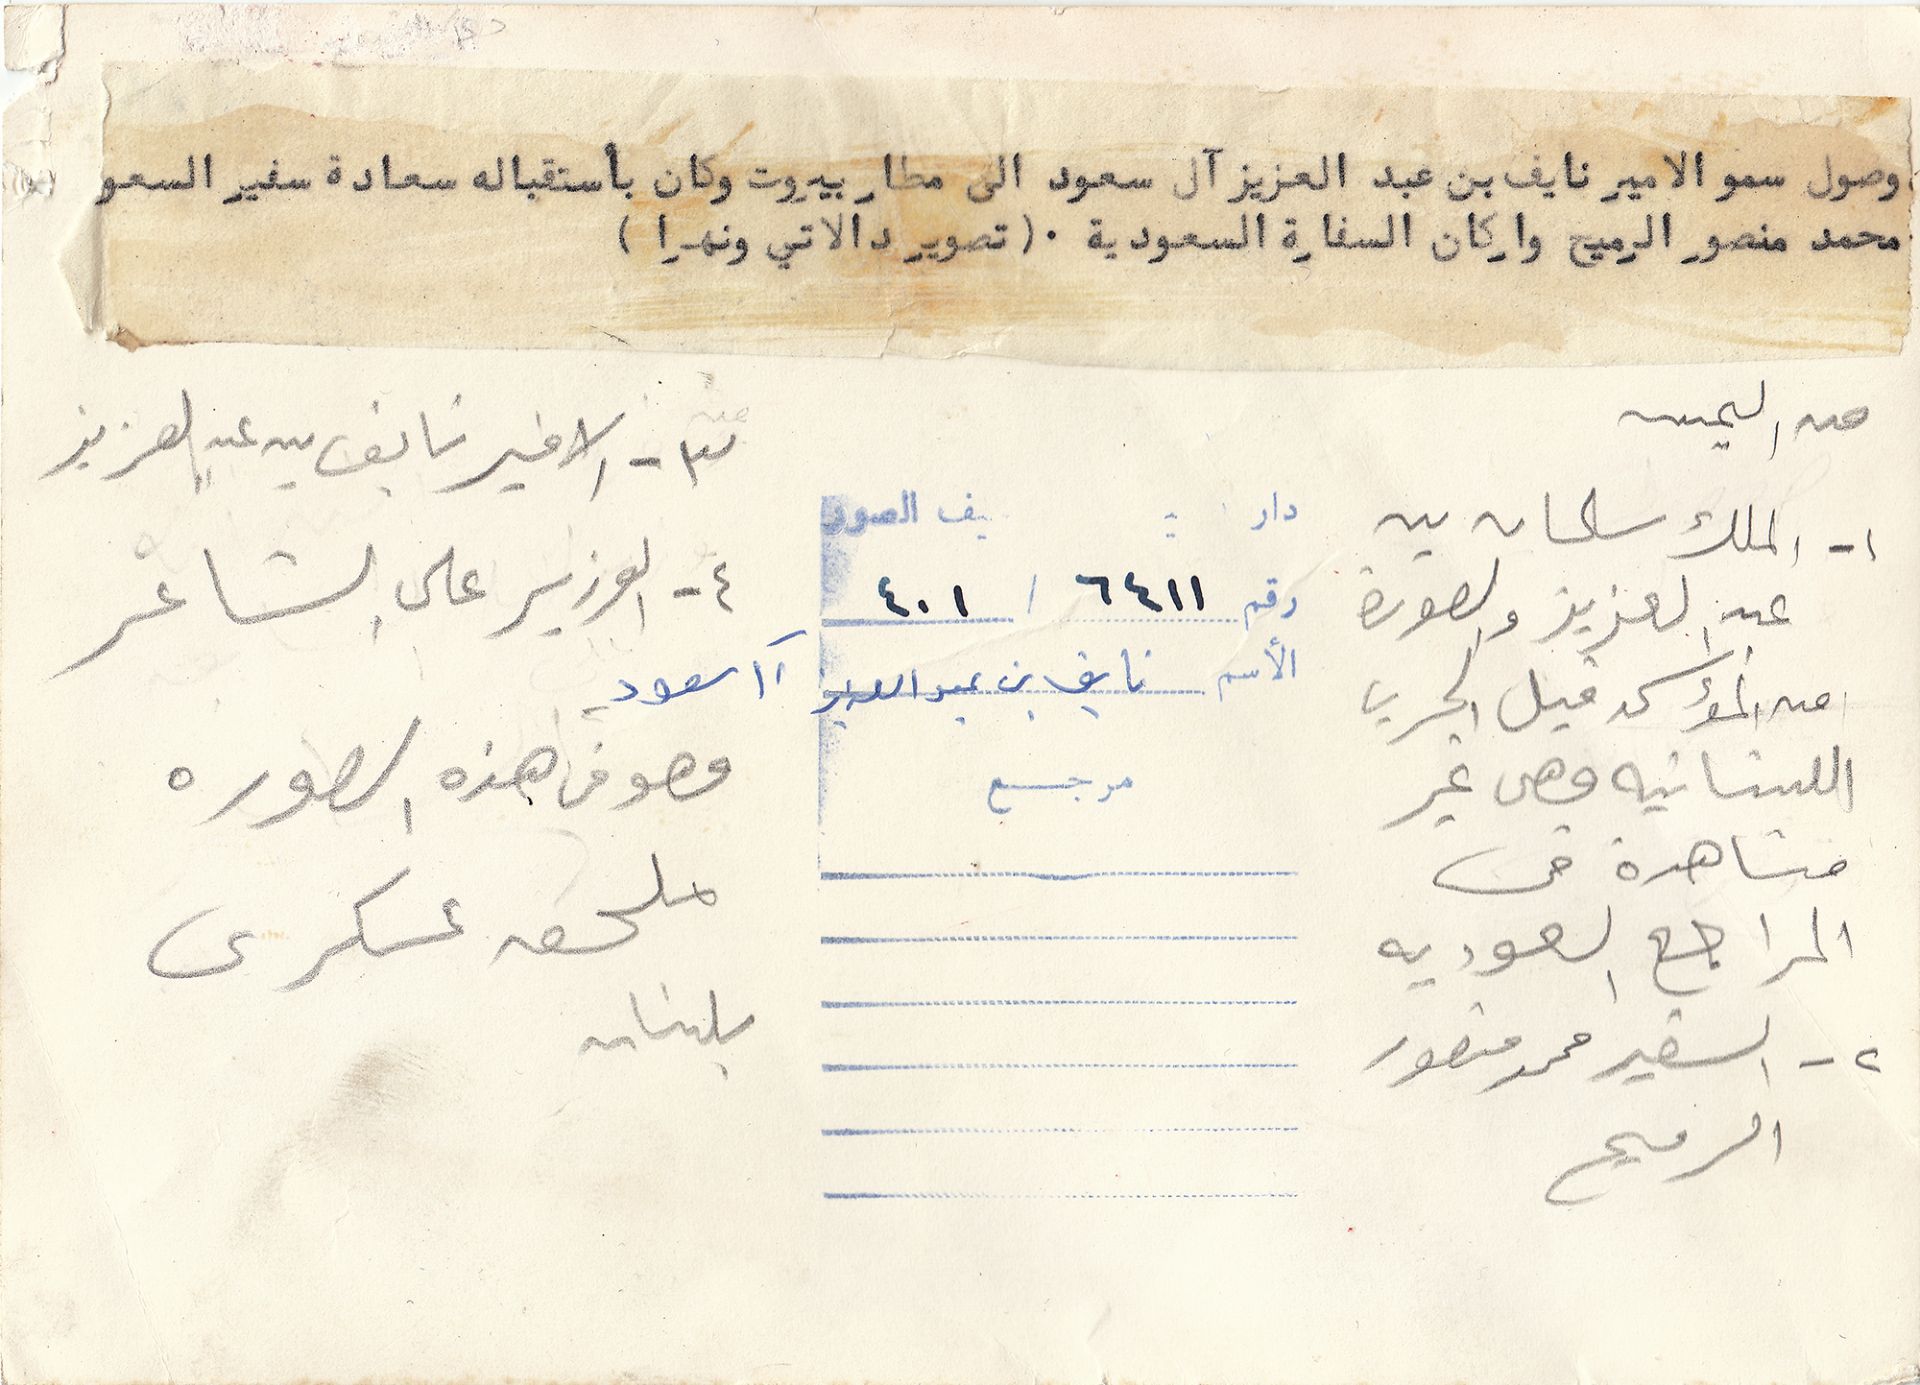 وصول سمو الامير نايف بن عبد العزيز آل سعود الى مطار بيروت وكان بأستقباله سعادة سفير السعو
محمد منصور الرميح واركان السفارة السعودية ٠ ( تصوير دالاتي ونهرا )
من اليمين
١- الملك سلمان بن
عبد العزيز والصورة
من المؤكد قبل الحرب
اللبنانيه وهى غير
مشاهدة فى
المراجع السعوديه
٢- السفير محمد منصور
الرميح
دار يف الصور
رقم ٦٤١١ / ٤٠١
الأسم نايف بن عبد العزيز آل سعود
مرجع
٣- الامير نايف بن عبد العزيز
٤- الوزير على الشاعر
وهو فى هذه الصوره
ملحق عسكرى
بلبنان